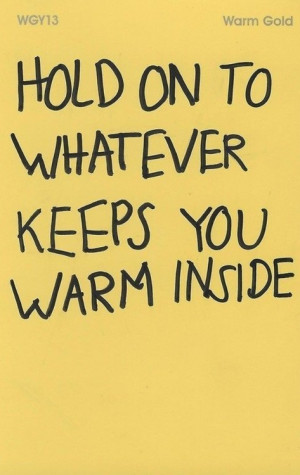 WGY13 Warm Gold
HOLD ON TO
WHATEVER
KEEPS YOU
WARM INSIDE